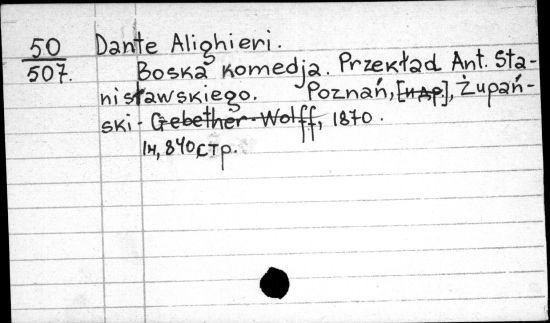 50 Dante Alighieri.
507. Boska Komedja. Przekład Ant. Sta-
nisławskiego. Poznań, [и др.], Żupań-
ski - Gebether-Wolff, 1870.
1н, 840 стр.